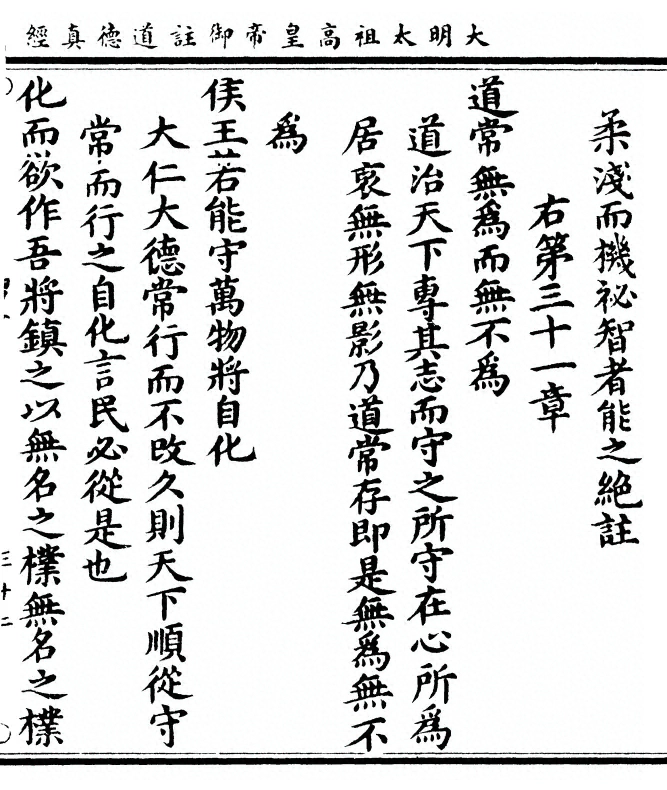 大明太祖高皇帝御註道德真經
柔淺而機祕智者能之絶註
右第三十一章
道常無爲而無不爲
道治天下專其志而守之所守在心所爲
居衷無形無影乃道常存即是無爲無不
爲
侯王若能守萬物將自化
大仁大德常行而不改久則天下順從守
常而行之自化言民必從是也
化而欲作吾將鎮之以無名之樸無名之樸
三十二